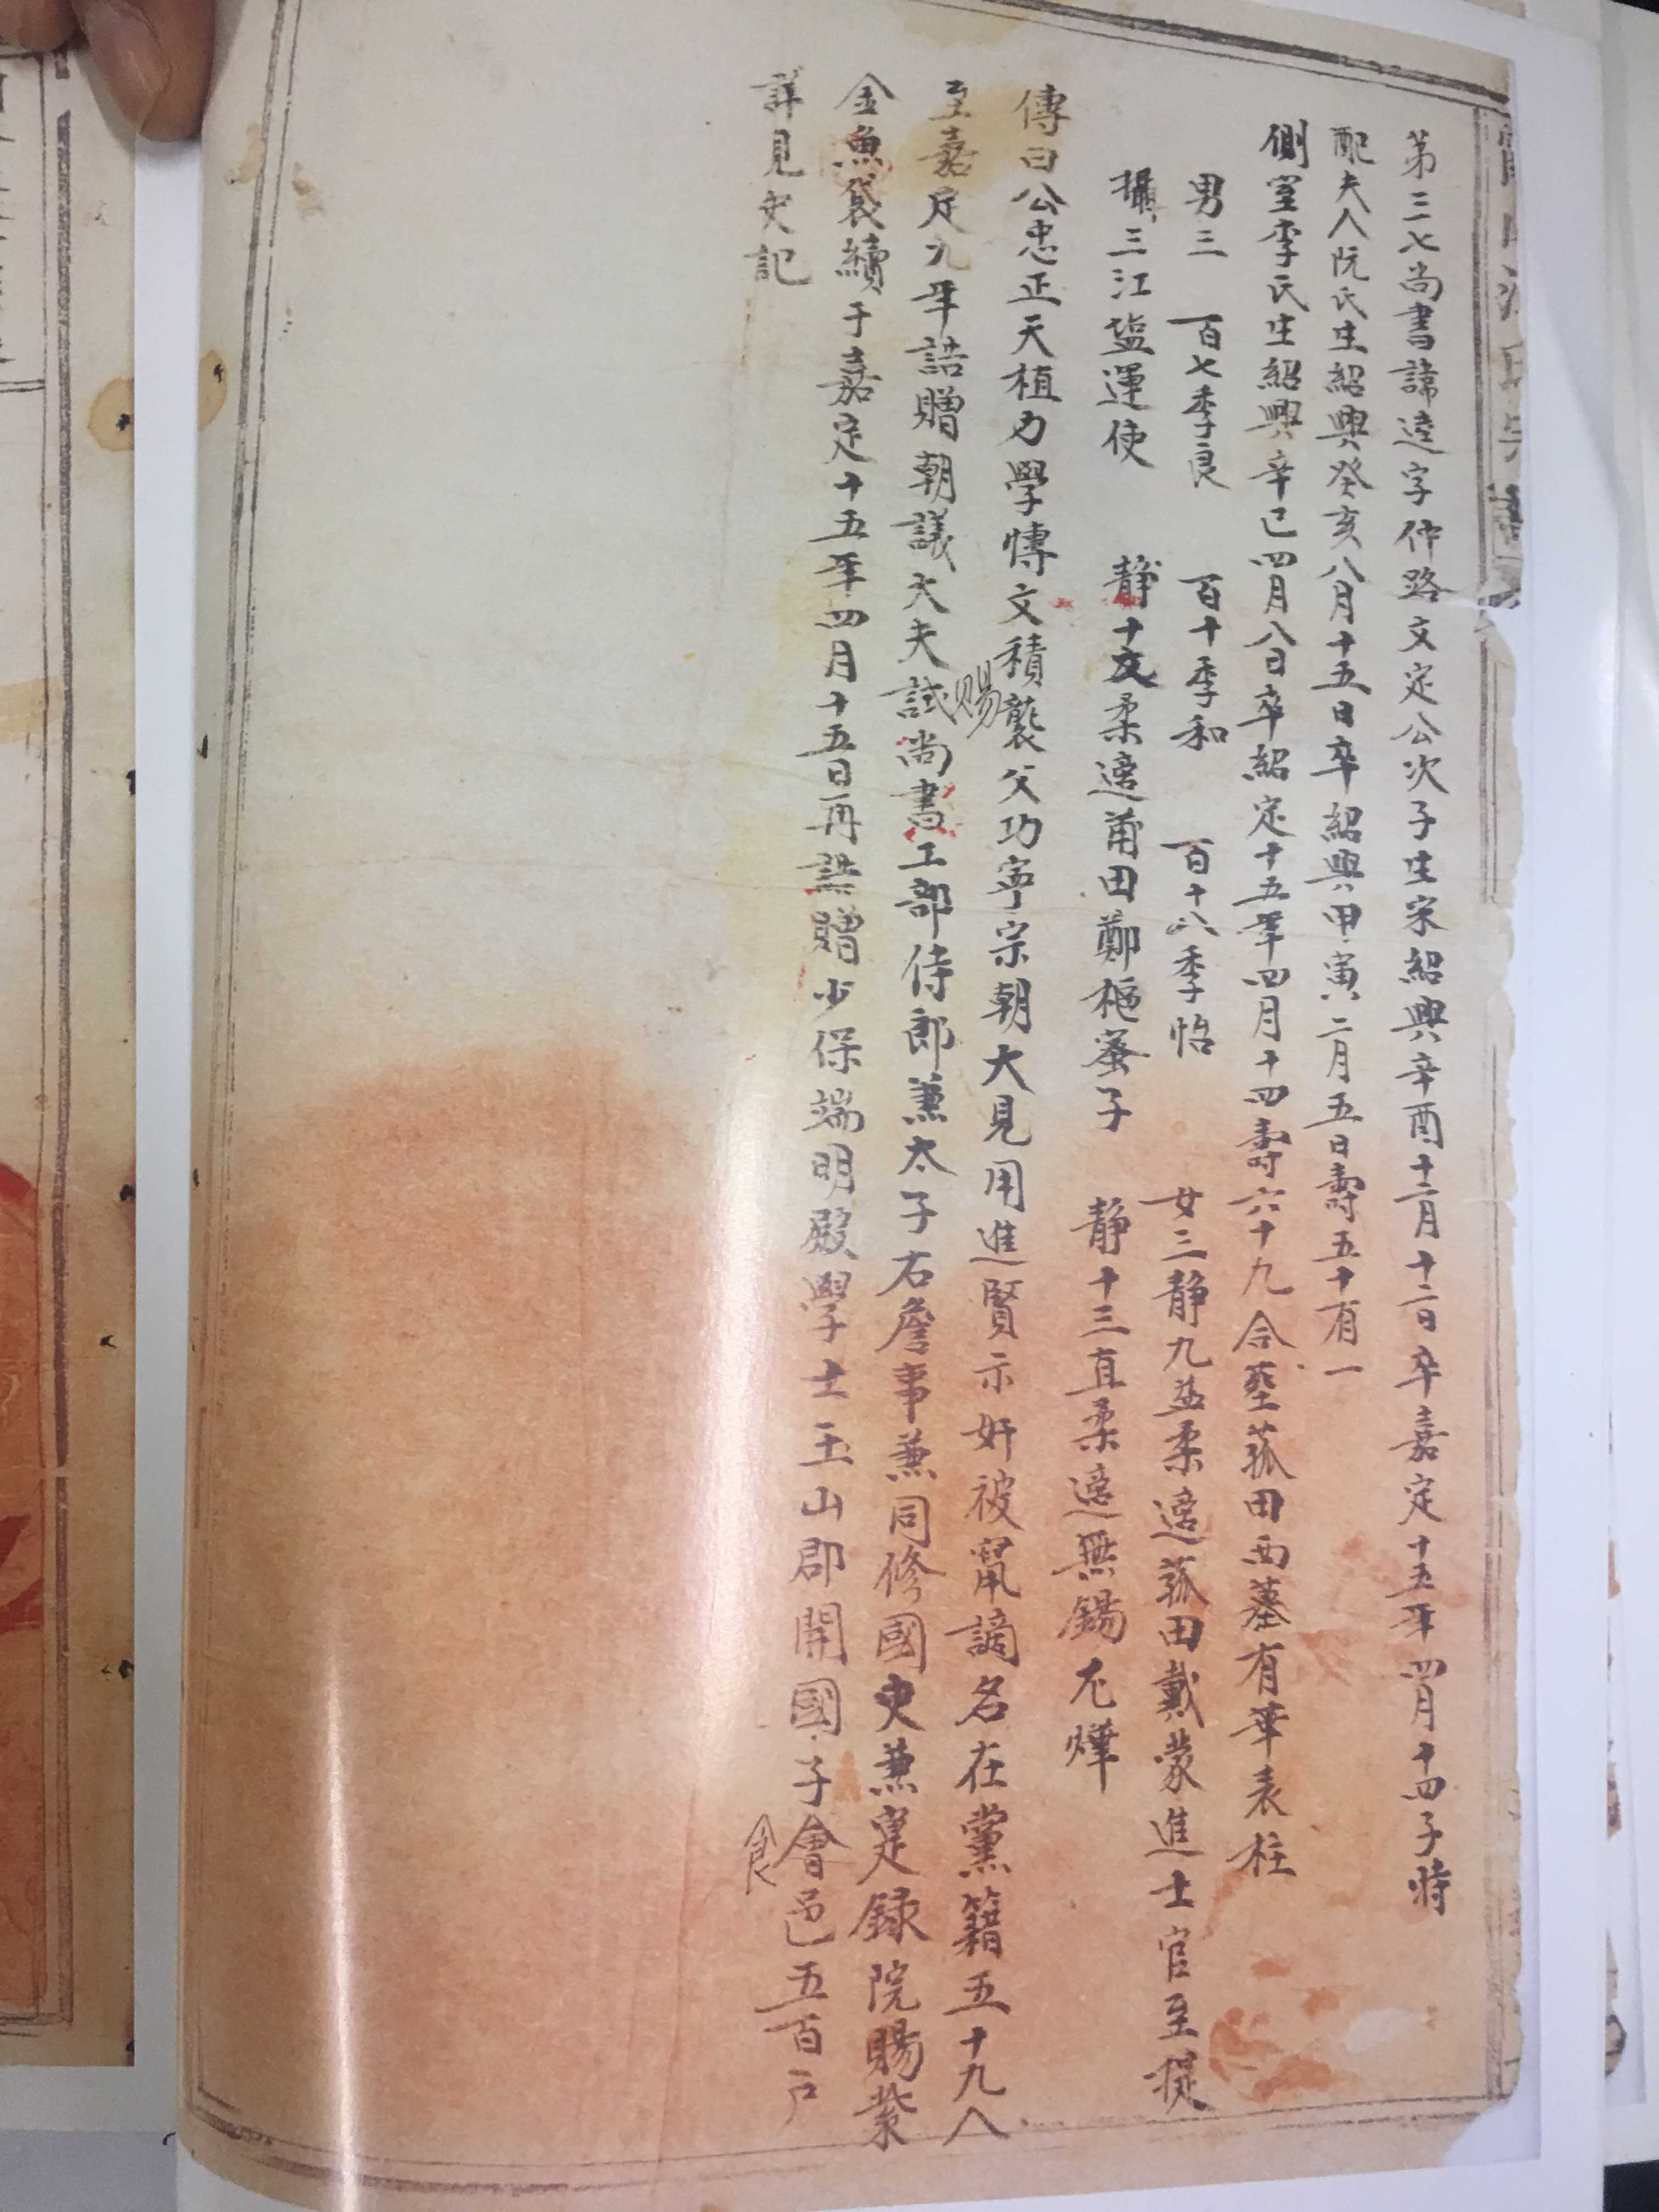 第三七尚書諱逵字仲路文定公次子生宋紹興辛酉十二月十二日卒嘉定十五年四月十四子時
配夫人阮氏生紹興癸亥八月十五日卒紹興甲寅二月五日壽五十有一
側室李氏生紹興辛巳四月八日卒紹定十五年四月十四壽六十九合塟菰田西墓有華表柱
男三 百七季良 百十季和 百十八季怡 女三靜九益柔適菰田戴蒙進士官至提
攝三江盐運使 靜十文柔適莆田鄭樞蜜子 靜十三直柔適無錫尤燁
傳曰公忠正天植力學慱文積襲父功寧宗朝大見用進賢示奸被竄謫名在黨籍五十九人
至嘉定九年誥贈朝議大夫試尚書工部侍郎兼太子右詹事兼同修國史兼寔録院賜紫
賜
金魚袋續于嘉定十五年四月十五日再誥贈少保端明殿學士玉山郡開國子會邑五百户
食
詳見史記